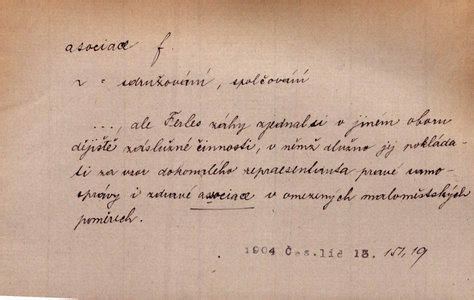 asociace f.
2 = sdružování, spolčování
..., ale Ferles záhy zjednal si v jiném oboru
dějiště záslužné činnosti, v němž dlužno jej pokláda-
ti za vzor dokonalého repraesentanta pravé samo-
správy i zdravé asociace v omezených maloměstských
poměrech.
1904 Čes. lid 13. 151, 19